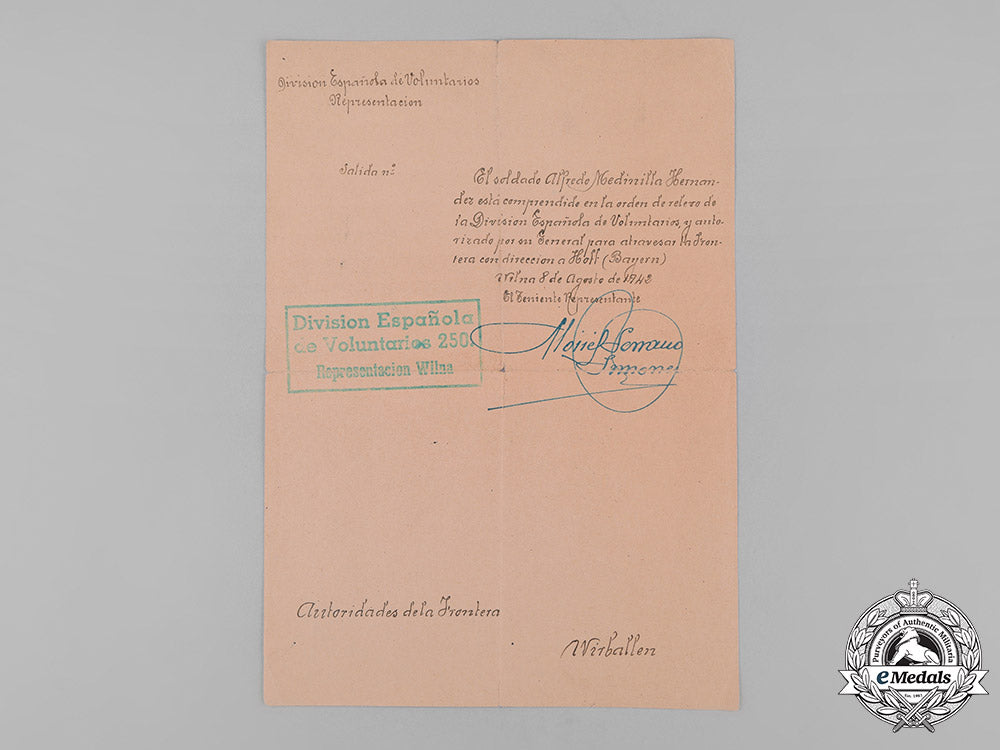 Division Española de Voluntarios
Representacion
Salida nº
El soldado Alfredo Medinilla Hernan-
dez está comprendido en la orden de relevo de
la Division Española de Voluntarios, y auto-
rizado por su General para atravesar la fron-
tera con direccion a Hoff (Bayern)
Wilna 8 de Agosto de 1942
El Teniente Representante
Division Española
de Voluntarios 250.
Representacion Wilna
Serrano
Autoridades de la Frontera
Wirballen
Purveyors of Authentic Militaria
eMedals